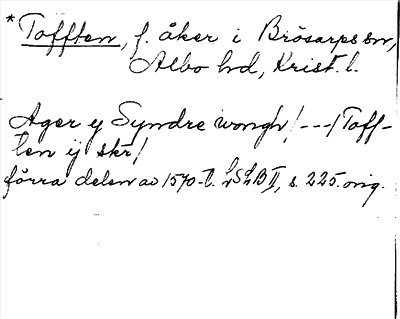 *Tofften, f. åker i Brösarps sn,
Albo hd, Krist. l.
Ager ij Syndre wongh/ ---/ Toff-
ten ij skr/
förra delen av 1570-t. LSLB II, s. 225. orig.